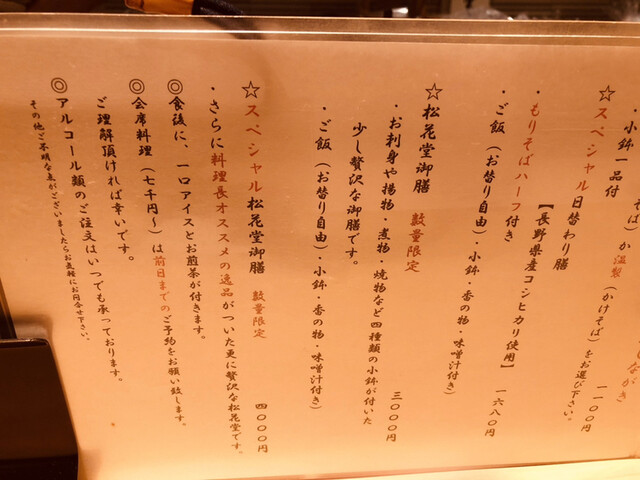 ながき
そば）か温製（かけそば）をお選び下さい。
小鉢一品付
一一〇〇円
☆スペシャル日替わり膳
【長野県産コシヒカリ使用】
・もりそばハーフ付き
・ご飯（お替り自由）・小鉢・香の物・味噌汁付き）
一六八〇円
☆松花堂御膳 数量限定
・お刺身や揚物・煮物・焼物など四種類の小鉢が付いた
少し贅沢な御膳です。
三〇〇〇円
・ご飯（お替り自由）・小鉢・香の物・味噌汁付き）
☆スペシャル松花堂御膳 数量限定
四〇〇〇円
・さらに料理長オススメの逸品がついた更に贅沢な松花堂です。
◎食後に、一口アイスとお煎茶が付きます。
◎会席料理（七千円〜）は前日までのご予約をお願い致します。
ご理解頂ければ幸いです。
◎アルコール類のご注文はいつでも承っております。
その他ご不明な点がございましたらお気軽にお問合せ下さい。